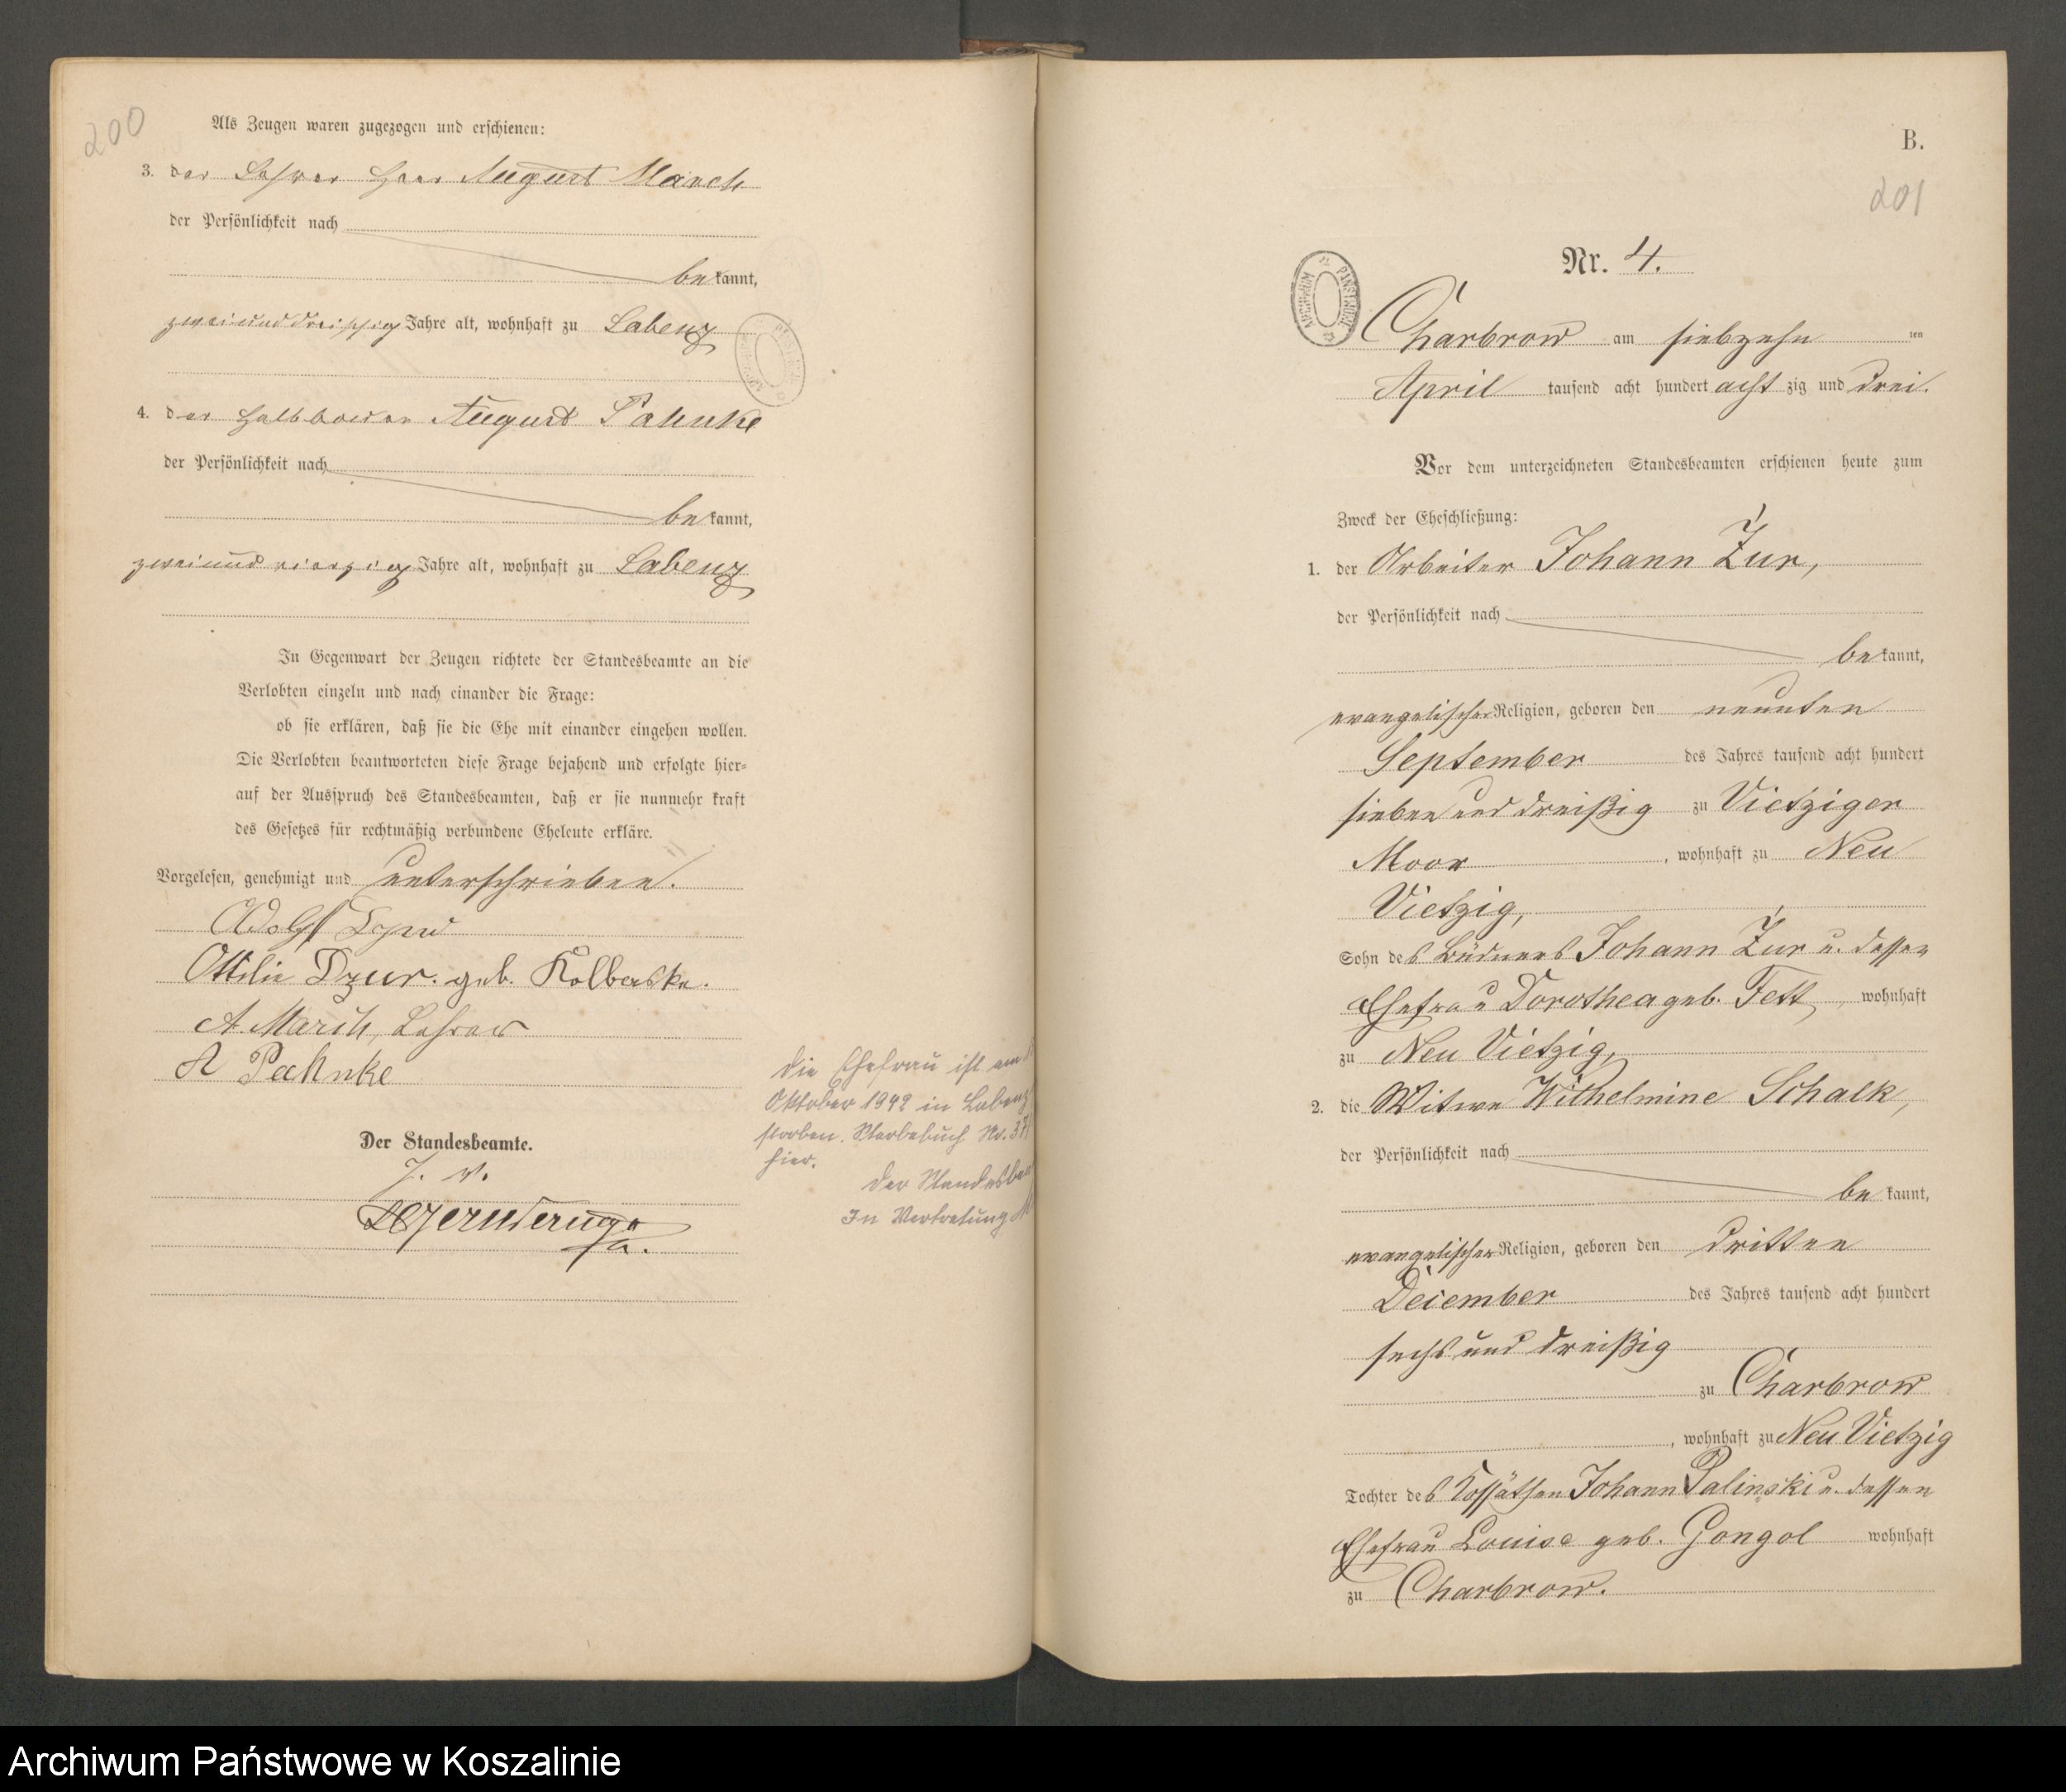 200
Als Zeugen waren zugezogen und erschienen:
3. der Lehrer Herr August March
der Persönlichkeit nach
bekannt,
zweiunddreißig Jahre alt, wohnhaft zu Labenz
4. der Halbbauer August Pahnke
der Persönlichkeit nach
bekannt,
zweiundvierzig Jahre alt, wohnhaft zu Labenz
In Gegenwart der Zeugen richtete der Standesbeamte an die
Verlobten einzeln und nach einander die Frage:
ob sie erklären, daß sie die Ehe mit einander eingehen wollen.
Die Verlobten beantworteten diese Frage bejahend und erfolgte hier-
auf der Ausspruch des Standesbeamten, daß er sie nunmehr kraft
des Gesetzes für rechtmäßig verbundene Eheleute erkläre.
Vorgelesen, genehmigt und unterschrieben.
Adolf
Ottilie Dzur. geb. Kolbaske.
A. March, Lehrer
A Pahnke
Der Standesbeamte.
J. V.
die Ehefrau ist am
Oktober 1942 in Labenz
storben. Sterbebuch Nr. 37
hier.
Der Standesbea
In Vertretung
B.
201
Nr. 4.
ARCHIWUM PAŃSTWOWE
Charbrow am siebzehn ten
April tausend acht hundert achtzig und drei.
Vor dem unterzeichneten Standesbeamten erschienen heute zum
Zweck der Eheschließung:
1. der Arbeiter Johann Żur,
der Persönlichkeit nach
bekannt,
evangelischer Religion, geboren den neunten
September des Jahres tausend acht hundert
sieben und dreißig zu Vietziger
Moor, wohnhaft zu Neu
Vietzig,
Sohn des Büdners Johann Żur u. dessen
Ehefrau Dorothea geb. Fett, wohnhaft
zu Neu Vietzig,
2. die Witwe Wilhelmine Schalk,
der Persönlichkeit nach
bekannt,
evangelischer Religion, geboren den dritten
December des Jahres tausend acht hundert
sechs und dreißig
zu Charbrow
, wohnhaft zu Neu Vietzig
Tochter des Kossäthen Johann Palinski u. dessen
Ehefrau Louise geb. Gongol wohnhaft
zu Charbrow.
Archiwum Państwowe w Koszalinie